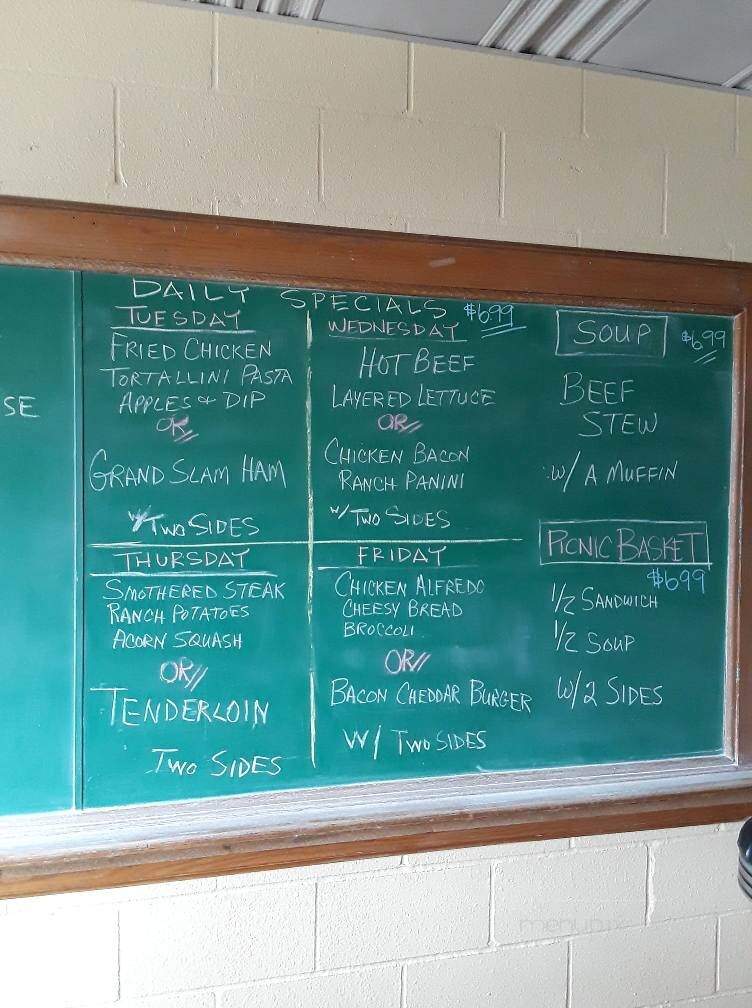 SE
DAILY SPECIALS $6.99
TUESDAY
FRIED CHICKEN
TORTALLINI PASTA
APPLES & DIP
OR
GRAND SLAM HAM
W/ TWO SIDES
WEDNESDAY
HOT BEEF
LAYERED LETTUCE
OR
CHICKEN BACON
RANCH PANINI
W/ TWO SIDES
THURSDAY
SMOTHERED STEAK
RANCH POTATOES
ACORN SQUASH
OR
TENDERLOIN
TWO SIDES
FRIDAY
CHICKEN ALFREDO
CHEESY BREAD
BROCCOLI
OR
BACON CHEDDAR BURGER
W/ TWO SIDES
SOUP $6.99
BEEF
STEW
W/ A MUFFIN
PICNIC BASKET
$6.99
1/2 SANDWICH
1/2 SOUP
W/ 2 SIDES